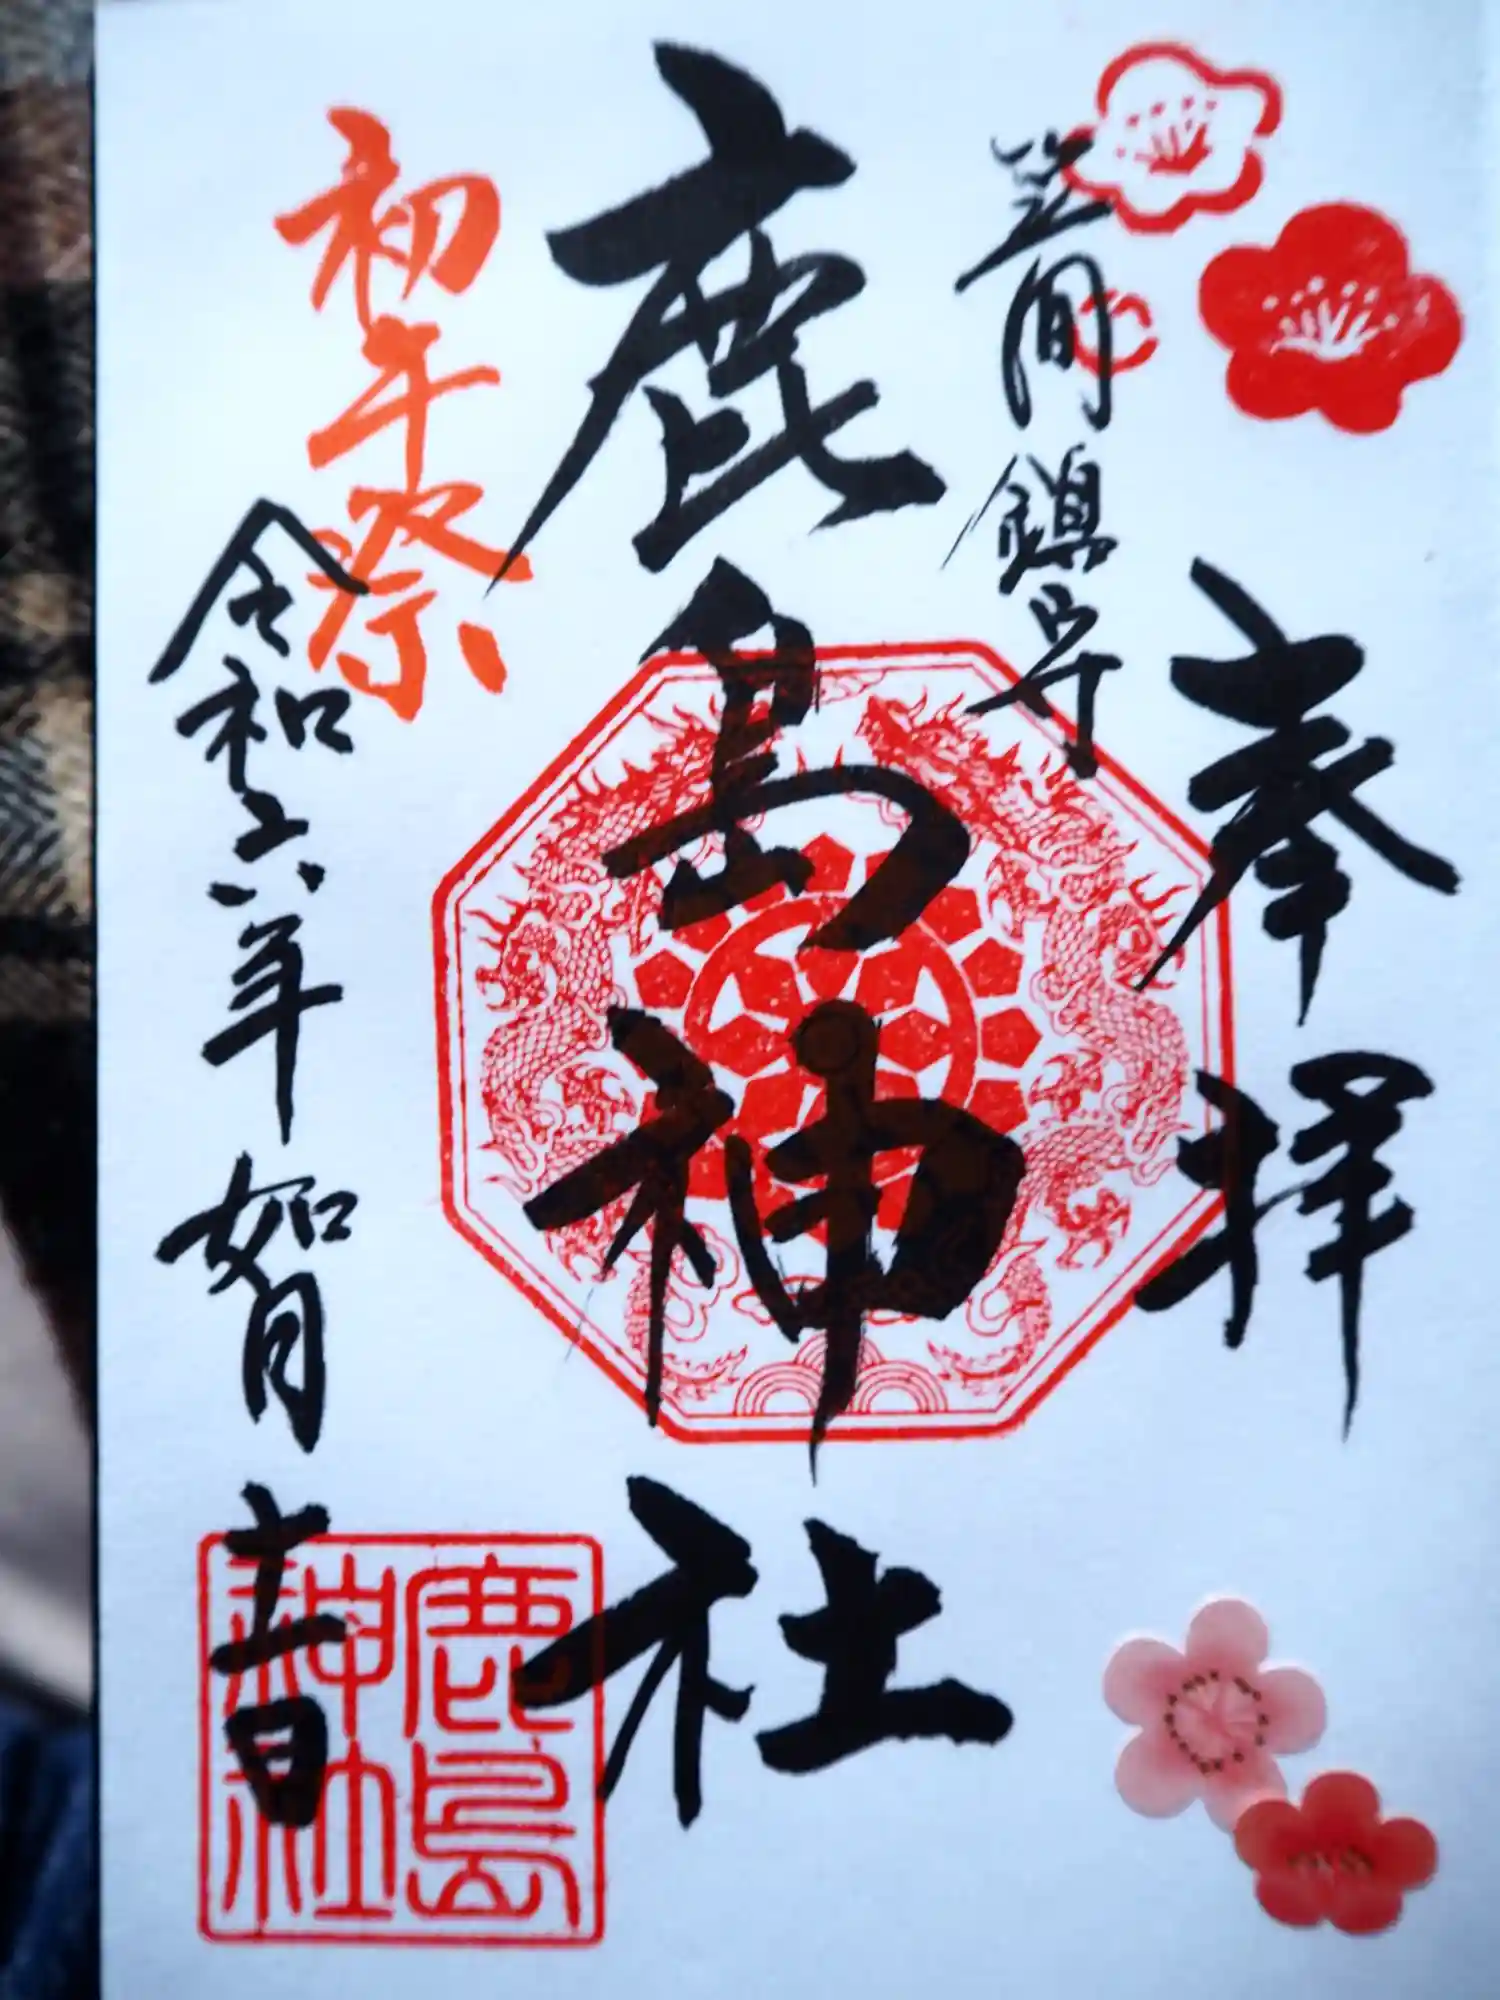 奉拝
笠間鎮守
鹿島神社
初午祭
令和六年如月吉日
鹿島
神社